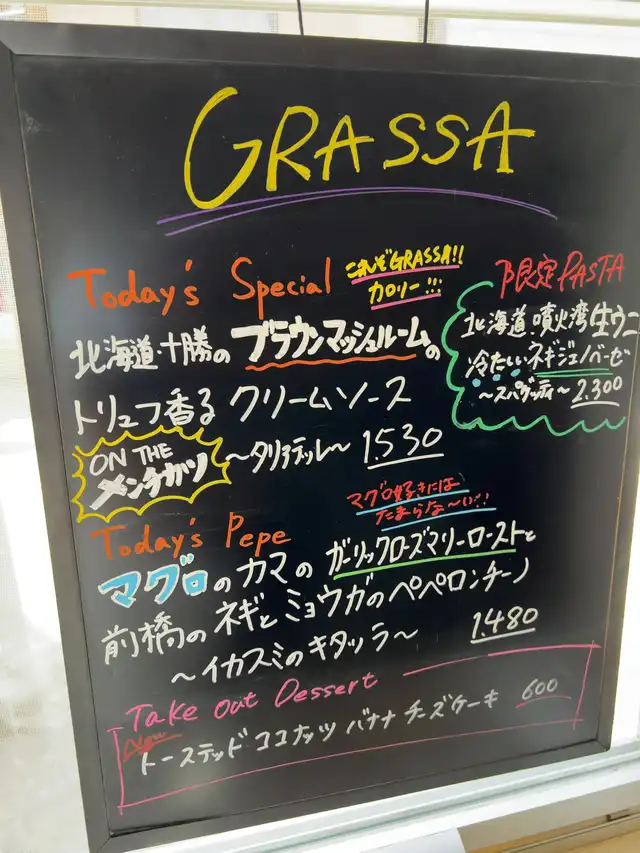 GRASSA
Today's Special
これぞGRASSA!!
カロリー!!!
北海道・十勝の ブラウンマッシュルームの
トリュフ香る クリームソース
ON THE
メンチカツ
〜タリアテッレ〜 1.530
限定PASTA
北海道 噴火湾 生ウニ
冷たいネギジェノベーゼ
〜スパゲッティ〜 2.300
Today's Pepe
マグロ好きには
たまらな〜い!!
マグロのカマの ガーリックローズマリーローストと
前橋のネギとミョウガのペペロンチーノ
〜イカスミのキタッラ〜 1.480
Take out Dessert
New
トーステッド ココナッツ バナナ チーズケーキ 600